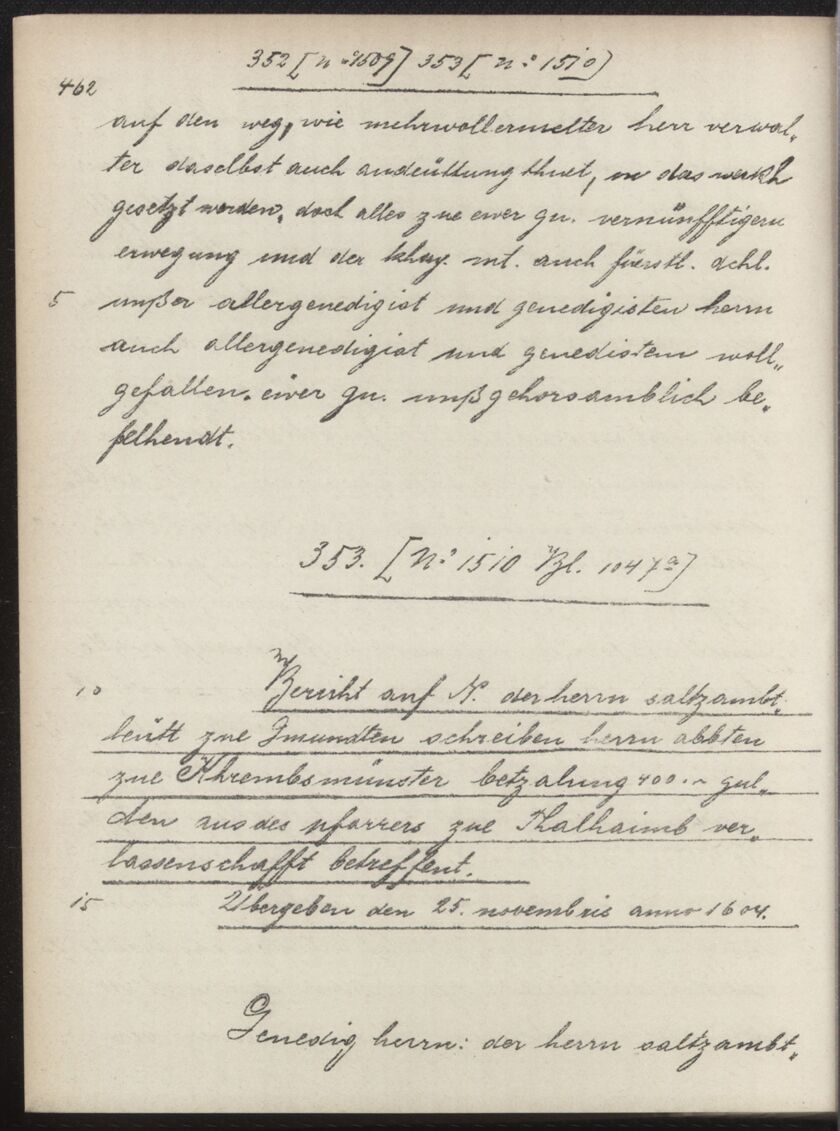 352 [N° 1509] 353 [N° 1510]
462
auf den weg, wie mehrwollermelter herr verwal„
ter daselbst auch andeüttung thuet, in das werkh
gesetzt werden, doch alles zue ewer gn. vernünfftigern
erwegung und der khay. mt. auch fürstl. dchl.
5 unßer allergenedigist und genedigisten herrn
auch allergenedigist und genedistem woll„
gefallen. eüer gn. unß gehorsamblich be„
felhendt.
353. [N° 1510 Bl. 1047a]
10 Bericht auf N. der herrn saltzambt„
leütt zue Gmundten schreiben herrn abbten
zue Khrembsmünster betzalung 400.~ gul„
den aus des pfarrers zue Thalhaimb ver„
lassenschafft betreffent.
15 Übergeben den 25. novembris anno 1604.
Genedig herrn: der herrn saltzambt„